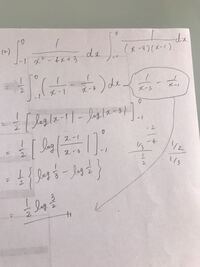 ∫_{-1}^{0} 1/(x²-4x+3) dx ∫_{-1}^{0} 1/((x-3)(x-1)) dx
= 1/2 ∫_{-1}^{0} (1/(x-1) - 1/(x-3)) dx 1/(x-3) - 1/(x-1)
= 1/2 [log|x-1| - log|x-3|]_{-1}^{0}
= 1/2 [log|(x-1)/(x-3)|]_{-1}^{0} -2/-4
= 1/2 {log 1/3 - log 1/2} 1/3 / 1/2 1/2 / 1/3
= 1/2 log 3/2